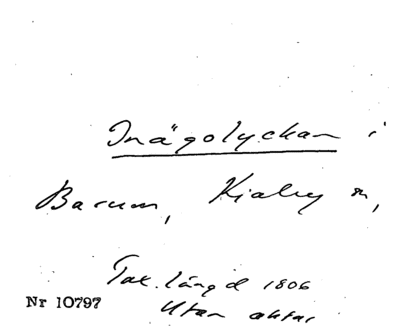 Inägolyckan i
Barum, Kiaby sn,
Tax. längd 1806
Nr 10797 Utan aktnr